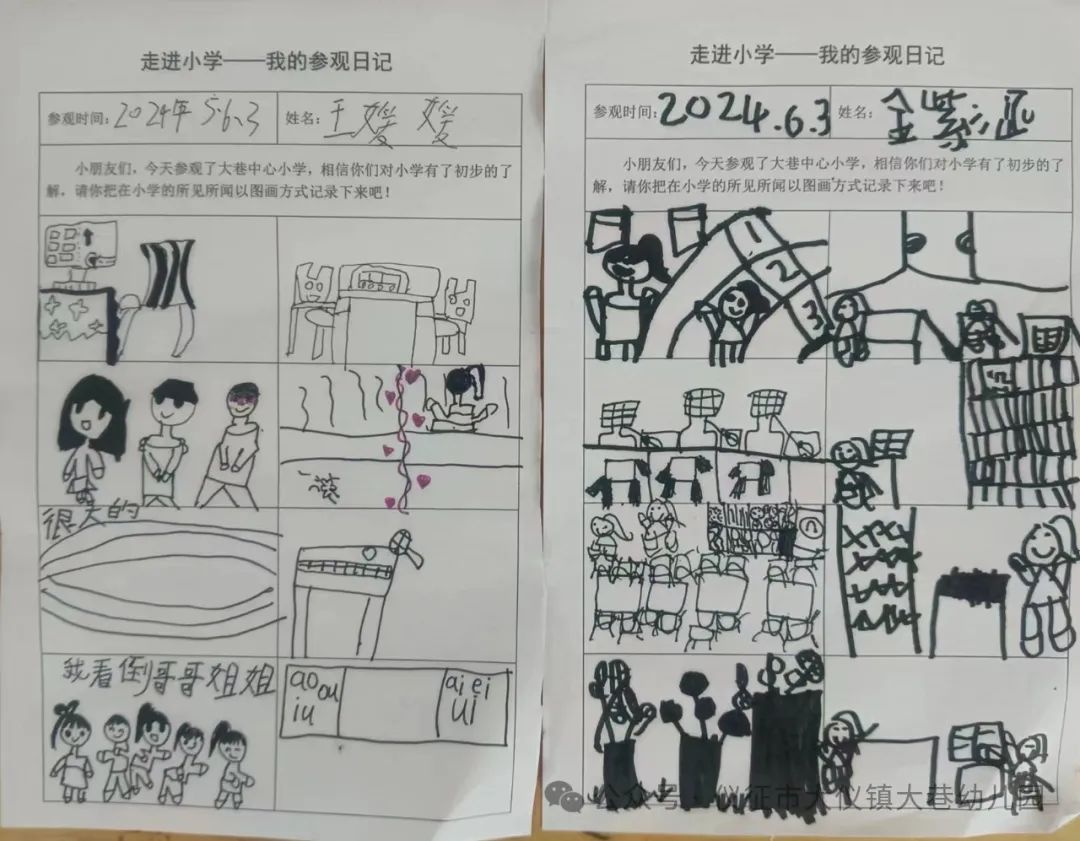 走进小学——我的参观日记
参观时间:2024年5.6.3
姓名:王嫒嫒
小朋友们，今天参观了大巷中心小学，相信你们对小学有了初步的了
解，请你把在小学的所见所闻以图画方式记录下来吧！
很大的
我看倒哥哥姐姐
ao ou
iu
ai ei
ui
走进小学——我的参观日记
参观时间:2024.6.3
姓名:金紫涵
小朋友们，今天参观了大巷中心小学，相信你们对小学有了初步的了
解，请你把在小学的所见所闻以图画方式记录下来吧！
1
2
3
公众号·仪征市大仪镇大巷幼儿园